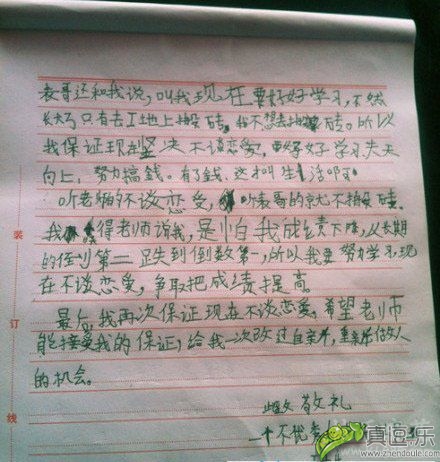 表哥还和我说，叫我现在要好好学习，不然
长大了只有去工地上搬砖。我不想去搬砖。所以
我保证现在坚决不谈恋爱，要好好学习天天
向上，努力搞钱。有了钱，这才叫生活啊！
听老师的不谈恋爱，听表哥的就不搬砖。
我觉得老师说我，是怕我成绩下降，从长期
的倒数第二跌到倒数第一，所以我要努力学习，现
在不谈恋爱，争取把成绩提高。
最后，我再次保证现在不谈恋爱。希望老师
能接受我的保证，给我一次改过自新，重新做人
的机会。
此致敬礼
一个不
装
订
线
真逗乐
www.zhendoule.com